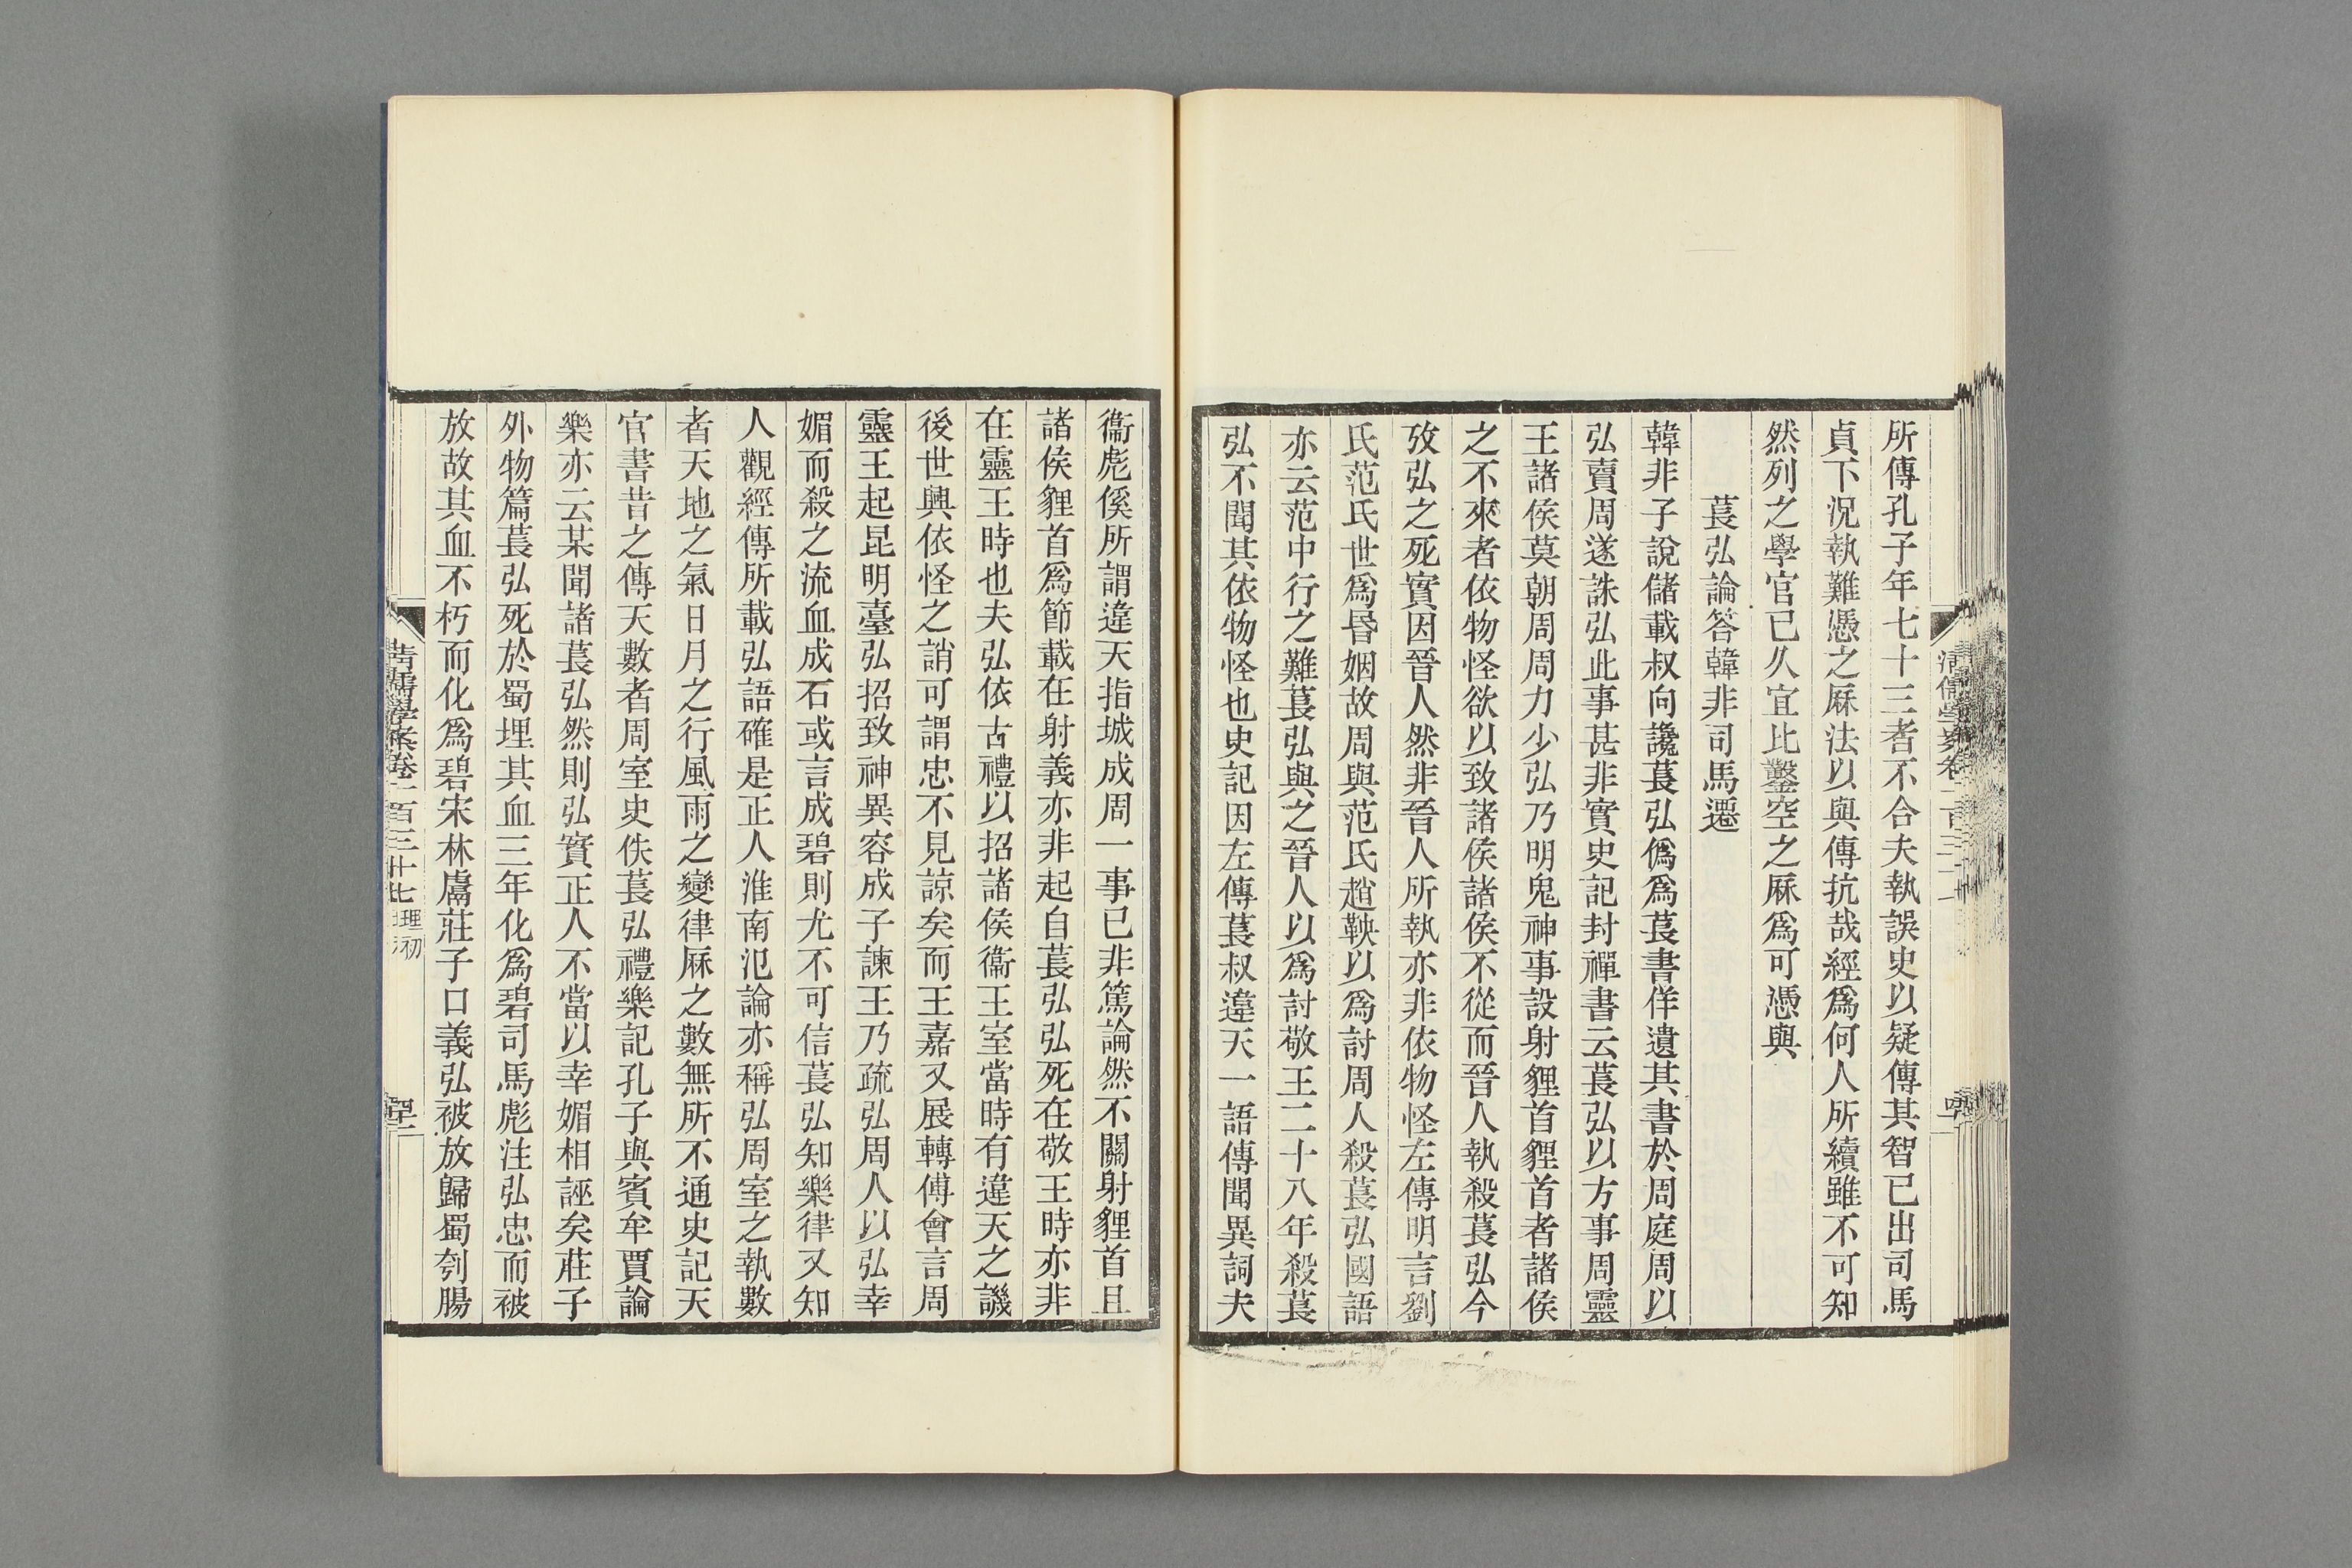 所傳孔子年七十三者不合夫執誤史以疑傳其智已出司馬
貞下況執難憑之厤法以與傳抗哉經爲何人所續雖不可知
然列之學官已久宜比鑿空之厤爲可憑與
萇弘論答韓非司馬遷
韓非子說儲載叔向讒萇弘僞爲萇書佯遺其書於周庭周以
弘賣周遂誅弘此事甚非實史記封禪書云萇弘以方事周靈
王諸侯莫朝周周力少弘乃明鬼神事設射貍首貍首者諸侯
之不來者依物怪欲以致諸侯諸侯不從而晉人執殺萇弘今
攷弘之死實因晉人然非晉人所執亦非依物怪左傳明言劉
氏范氏世爲昬姻故周與范氏趙鞅以爲討周人殺萇弘國語
亦云范中行之難萇弘與之晉人以爲討敬王二十八年殺萇
弘不聞其依物怪也史記因左傳萇叔違天一語傳聞異詞夫
衞彪傒所謂違天指城成周一事已非篤論然不關射貍首且
諸侯貍首爲節載在射義亦非起自萇弘弘死在敬王時亦非
在靈王時也夫弘依古禮以招諸侯衞王室當時有違天之譏
後世興依怪之誚可謂忠不見諒矣而王嘉又展轉傅會言周
靈王起昆明臺弘招致神異容成子諫王乃疏弘周人以弘幸
媚而殺之流血成石或言成碧則尤不可信萇弘知樂律又知
人觀經傳所載弘語確是正人淮南氾論亦稱弘周室之執數
者天地之氣日月之行風雨之變律厤之數無所不通史記天
官書昔之傳天數者周室史佚萇弘禮樂記孔子與賓牟賈論
樂亦云某聞諸萇弘然則弘實正人不當以幸媚相誣矣莊子
外物篇萇弘死於蜀埋其血三年化爲碧司馬彪注弘忠而被
放故其血不朽而化爲碧宋林鬳莊子口義弘被放歸蜀刳腸
清儒學案卷一百三十七 理初